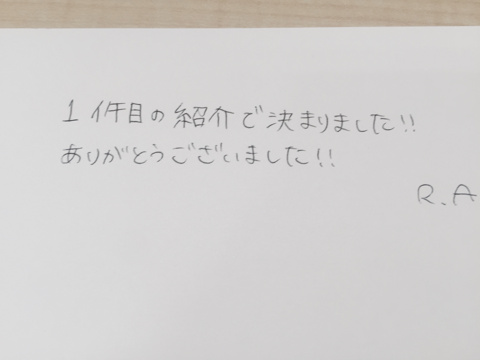 1件目の紹介で決まりました!!
ありがとうございました!!
R.A